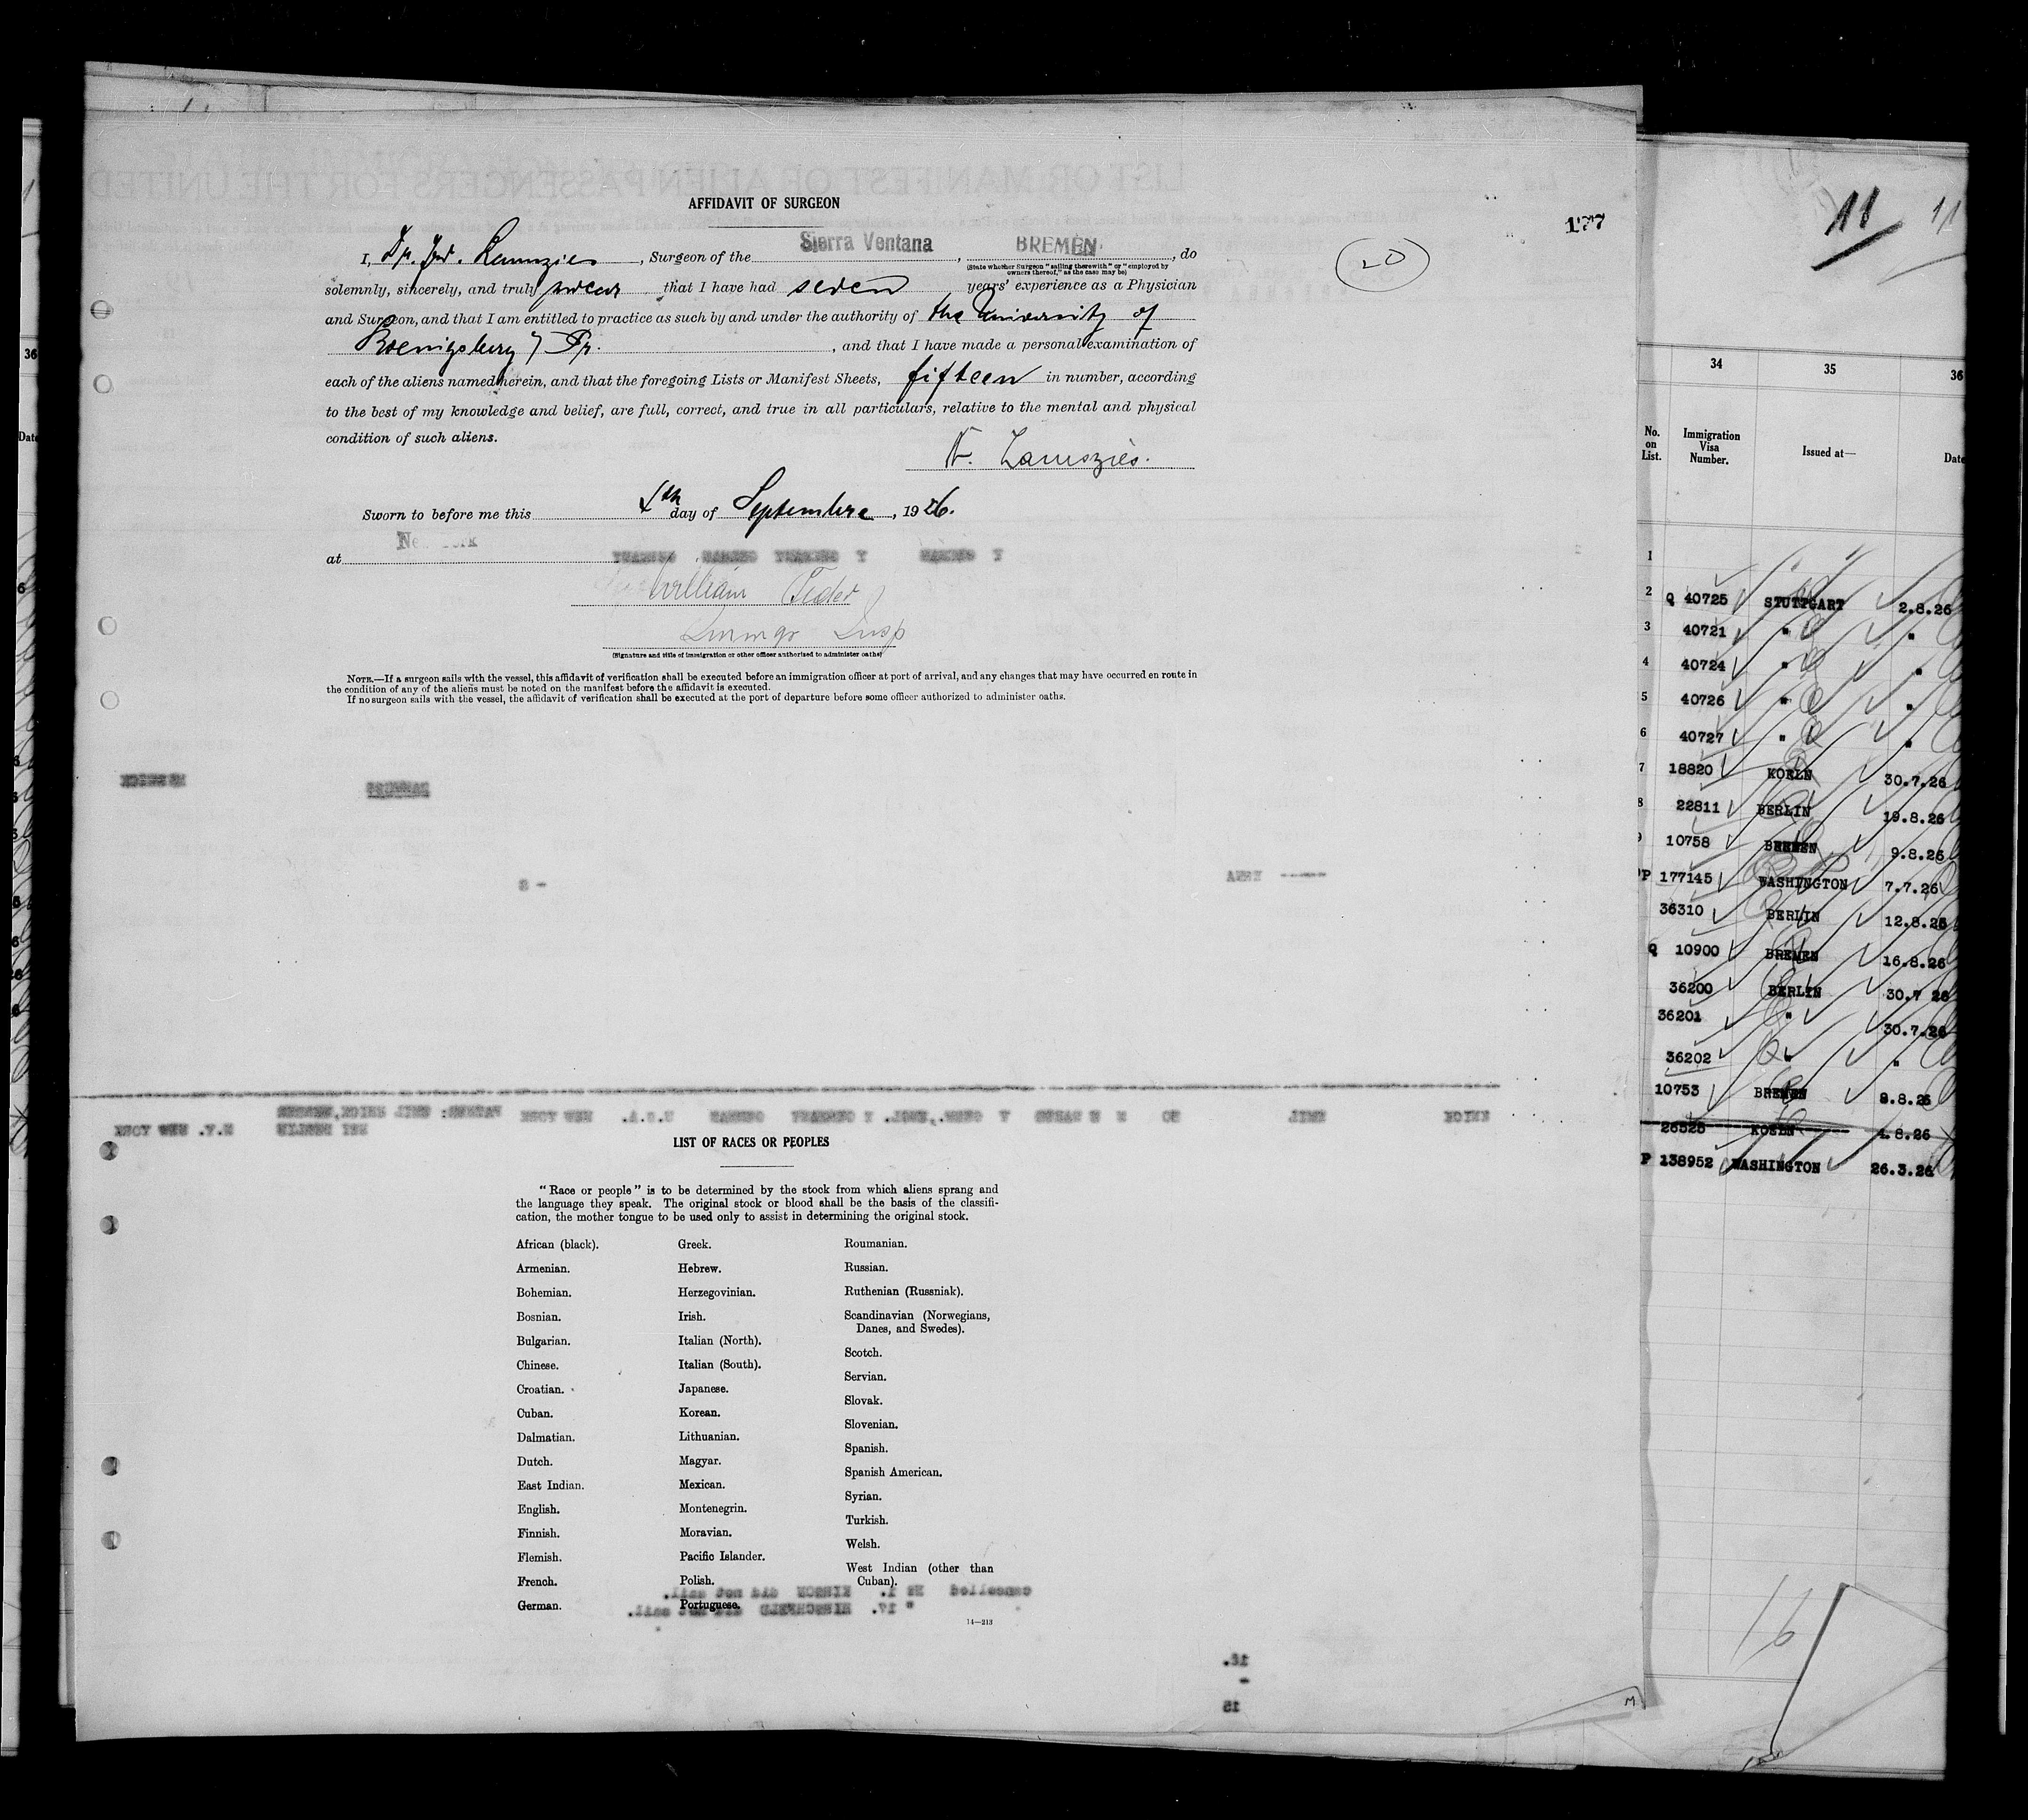 AFFIDAVIT OF SURGEON
177
I, Dr. , Surgeon of the Sierra Ventana, BREMEN, do
(State whether Surgeon "sailing therewith" or "employed by
owners thereof," as the case may be)
20
solemnly, sincerely, and truly swear that I have had seven years' experience as a Physician
and Surgeon, and that I am entitled to practice as such by and under the authority of the University of
Koenigsberg / Pr. , and that I have made a personal examination of
each of the aliens named herein, and that the foregoing Lists or Manifest Sheets, fifteen in number, according
to the best of my knowledge and belief, are full, correct, and true in all particulars, relative to the mental and physical
condition of such aliens.
Sworn to before me this 4th day of Septembre, 1926.
at New York
William
Immgr Insp
(Signature and title of immigration or other officer authorized to administer oaths)
NOTE.—If a surgeon sails with the vessel, this affidavit of verification shall be executed before an immigration officer at port of arrival, and any changes that may have occurred en route in
the condition of any of the aliens must be noted on the manifest before the affidavit is executed.
If no surgeon sails with the vessel, the affidavit of verification shall be executed at the port of departure before some officer authorized to administer oaths.
LIST OF RACES OR PEOPLES
"Race or people" is to be determined by the stock from which aliens sprang and
the language they speak. The original stock or blood shall be the basis of the classifi-
cation, the mother tongue to be used only to assist in determining the original stock.
African (black).
Armenian.
Bohemian.
Bosnian.
Bulgarian.
Chinese.
Croatian.
Cuban.
Dalmatian.
Dutch.
East Indian.
English.
Finnish.
Flemish.
French.
German.
Greek.
Hebrew.
Herzegovinian.
Irish.
Italian (North).
Italian (South).
Japanese.
Korean.
Lithuanian.
Magyar.
Mexican.
Montenegrin.
Moravian.
Pacific Islander.
Polish.
Portuguese.
Roumanian.
Russian.
Ruthenian (Russniak).
Scandinavian (Norwegians,
Danes, and Swedes).
Scotch.
Servian.
Slovak.
Slovenian.
Spanish.
Spanish American.
Syrian.
Turkish.
Welsh.
West Indian (other than
Cuban).
14—213
M
11 11
34 35 36
No. on List. Immigration Visa Number. Issued at— Date
1
2 Q 40725 STUTTGART 2.8.26
3 40721 " "
4 40724 " "
5 40726 " "
6 40727 " "
7 18820 KOELN 30.7.26
8 22811 BERLIN 19.8.26
9 10758 BREMEN 9.8.26
P 177145 WASHINGTON 7.7.26
36310 BERLIN 12.8.26
Q 10900 BREMEN 16.8.26
36200 BERLIN 30.7 26
36201 " 30.7.26
36202 " "
10753 BREMEN 9.8.26
26525 KOELN 4.8.26
P 138952 WASHINGTON 26.3.26
16
36
Date